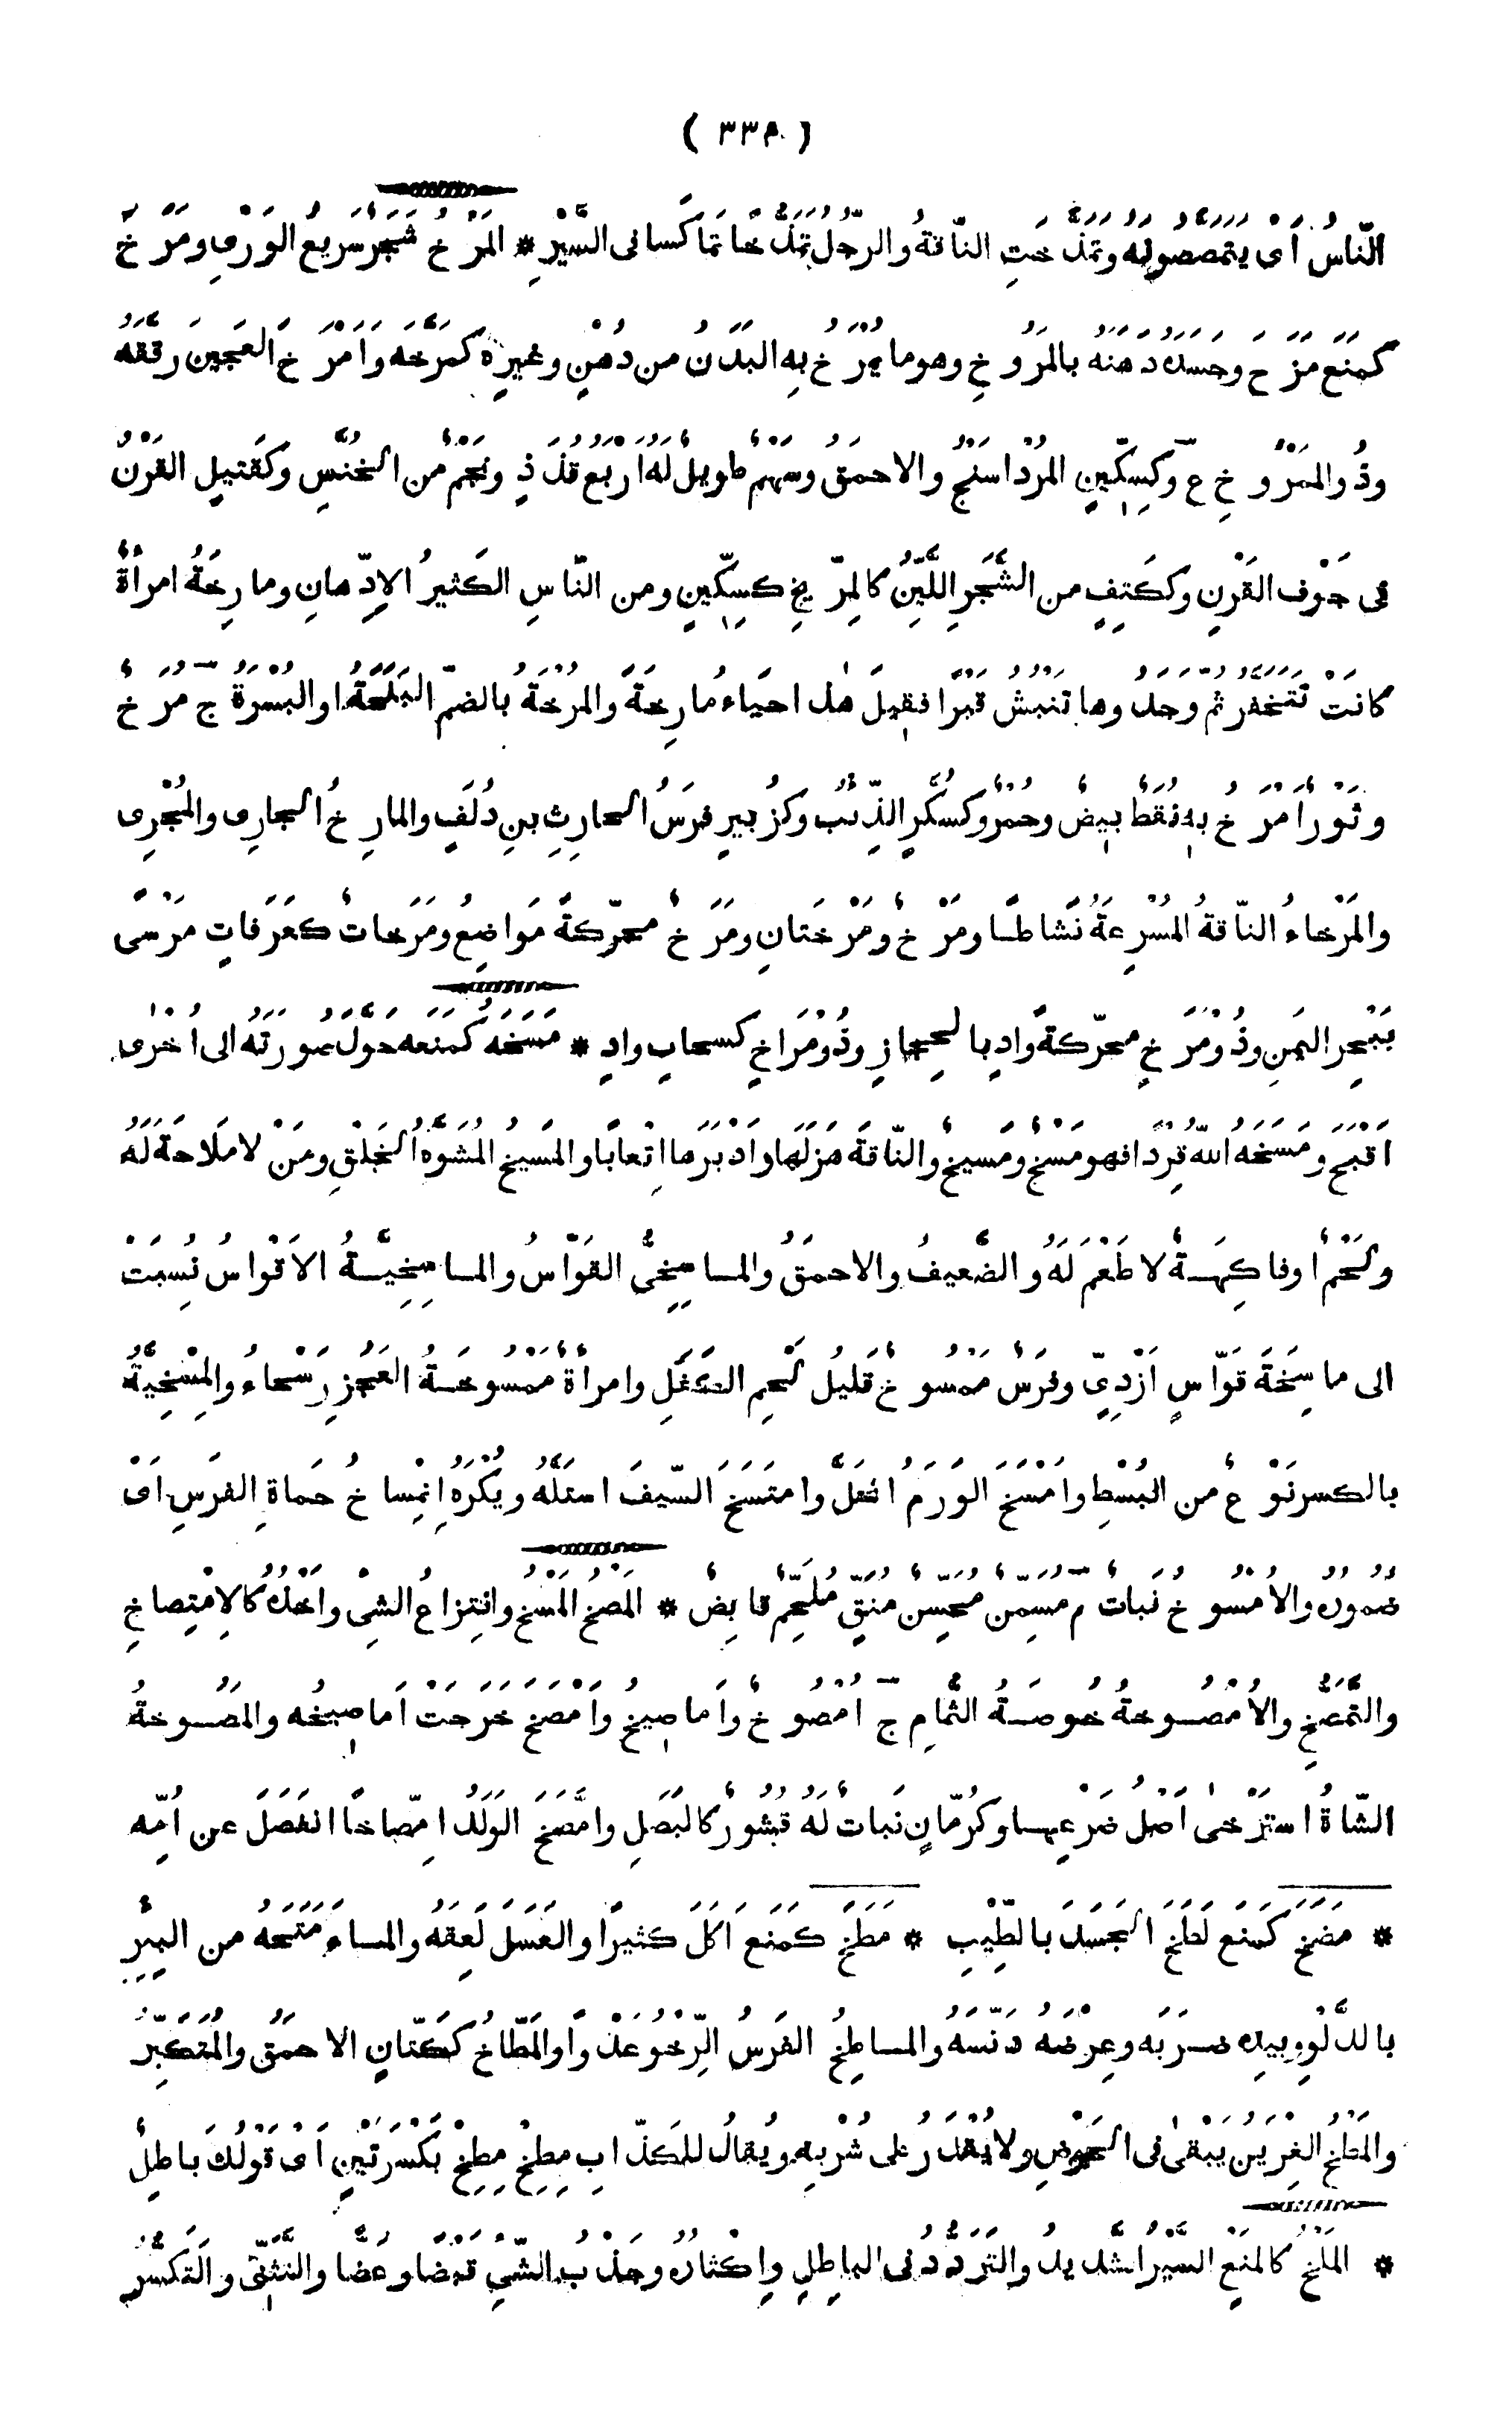 ( ٣٣٨ )
النّاسُ أى يتمصصونه وتمذّختِ النّاقةُ والرجلُ تمذّخا تماكسا فى السَّيْرِ * المَرْخُ شَجَرٌ سريعُ الوَرْىِ ومَرَخَ
كَمَنَعَ مَزَحَ وجسدَه دهنهُ بالمَرُوخِ وهو ما يُمْرَخُ بِهِ البَدَنُ من دُهْنٍ وغيرِه كمرَّخه وأمْرَخَ العَجينَ رققهُ
وذُو المَمْرُوخِ ع وكسِكِّينٍ المُرْداسَنْجُ والاحمَقُ وسَهْمٌ طويلٌ له أربَعُ قُذَذٍ ونَجْمٌ من الخُنَّسِ وكقَتيلٍ القَرْنُ
فى جَوْفِ القَرْنِ وككَتِفٍ من الشَّجَرِ اللَّيِّنُ كالمِرّيخِ كسِكِّينٍ ومن النّاسِ الكَثيرُ الإدِّهانِ ومارِخَةُ امرأةٌ
كانَتْ تَتَخَفَّرُ ثم وجدُوها تَنبُشُ قَبْرًا فقِيلَ هذا حَياءُ مارِخةَ والمُرْخَةُ بالضمّ البَلَحَةُ أو البُسْرَةُ ج مُرَخٌ
وثَوْرٌ أمْرَخُ بِهِ نُقَطٌ بِيضٌ وحُمْرٌ وكسُكَّرٍ الذِّئبُ وكزُبيرٍ فرَسُ الحارِثِ بنِ دُلَفٍ والمارِخُ الجارِى والمُجْرِى
والمَرْخاءُ النّاقةُ المُسْرِعةُ نَشاطًا ومَرْخٌ ومَرْخَتانِ ومَرَخٌ محرّكةً مَواضِعُ ومَرَخاتٌ كعَرَفاتٍ مَرْسًى
ببَحْرِ اليَمَنِ وذُو مَرَخٍ محرّكةً وادٍ بالحِجازِ وذُو مَرَاخٍ كسحابٍ وادٍ * مَسَخَهُ كمَنَعه حَوَّلَ صُورَتَهُ الى أُخْرى
أقْبَحَ ومَسَخَهُ اللّهُ قِرْدًا فهو مَسْخٌ ومَسيخٌ والنّاقةَ هَزَلَها وأدْبَرَها إتْعابًا والمَسيخُ المُشَوَّهُ الخَلْقِ ومَنْ لا مَلاحَةَ لَهُ
ولَحْمٌ أو فاكِهَةٌ لا طَعْمَ لَهُ والضَّعيفُ والاحمَقُ والماسِخِىُّ القَوّاسُ والماسِخِيَّةُ الاَقْواسُ نُسِبَتْ
الى ماسِخَةَ قَوّاسٍ أزْدِىٍّ وفرَسٌ ممسُوخٌ قَليلُ لَحْمِ الكَفَلِ وامرأةٌ مَمْسُوخَةُ العَجُزِ رَسْحاءُ والمِسْخِيَّةُ
بالكسر نَوْعٌ من البُسْطِ وأمْسَخَ الوَرَمُ انحَلَّ وامتَسَخَ السّيفَ استَلَّهُ ويُكْرَهُ انْمِساخُ حَماةِ الفَرَسِ أىْ
ضُمُورُه والأُمْسُوخُ نَباتٌ م مسَمِّنٌ محَسِّنٌ منَقٍّ مُلَحِّمٌ قابِضٌ * المَصْخُ المَسْخُ وانتِزاعُ الشئ وأخْذُه كالامْتِصاخِ
والتَّمَصُّخِ والأُمْصُوخةُ خُوصَةُ الثُّمامِ ج أُمْصُوخٌ وأماصِيخُ وأمْصَخَ خَرَجَتْ أماصِيخُه والمَصُوخةُ
الشّاةُ اسْتَرْخى أصْلُ ضَرْعِها وكرُمّانٍ نَباتٌ لَهُ قُشُورٌ كالبَصَلِ وامَّصَخَ الوَلَدُ امِّصاخًا انفَصَلَ عن أُمّه
* مَضَخَ كمَنَعَ لَطَخَ الجَسَدَ بالطِّيْبِ * مَطَخَ كمَنَعَ أكَلَ كثيرًا والعَسَلَ لَعِقَهُ والماءَ مَتَحَهُ من البِئْرِ
بالدَّلْوِ وبيدِه ضَرَبَه وعِرْضَهُ دَنَّسَهُ والماطِخُ الفَرَسُ الرِّخْوُ عَدْوًا والمَطّاخُ ككَتّانٍ الاحمَقُ والمُتَكَبِّرُ
والمَطْخُ الغِرْيَنُ يَبْقى فى الحَوْضِ ولا يُقْدَرُ على شُرْبِه ويُقالُ للكَذّابِ مِطِخْ مِطِخْ بكَسْرَتَيْنِ أى قَوْلُكَ باطِلٌ
* المَلْخُ كالمَنْعِ السَّيْرُ الشديدُ والتَرَدُّدُ فى الباطِلِ وإكْثارُه وجَذْبُ الشَّئِ قَبْضًا وعَضًّا والتَّثَنِّى والتَكَسُّرُ